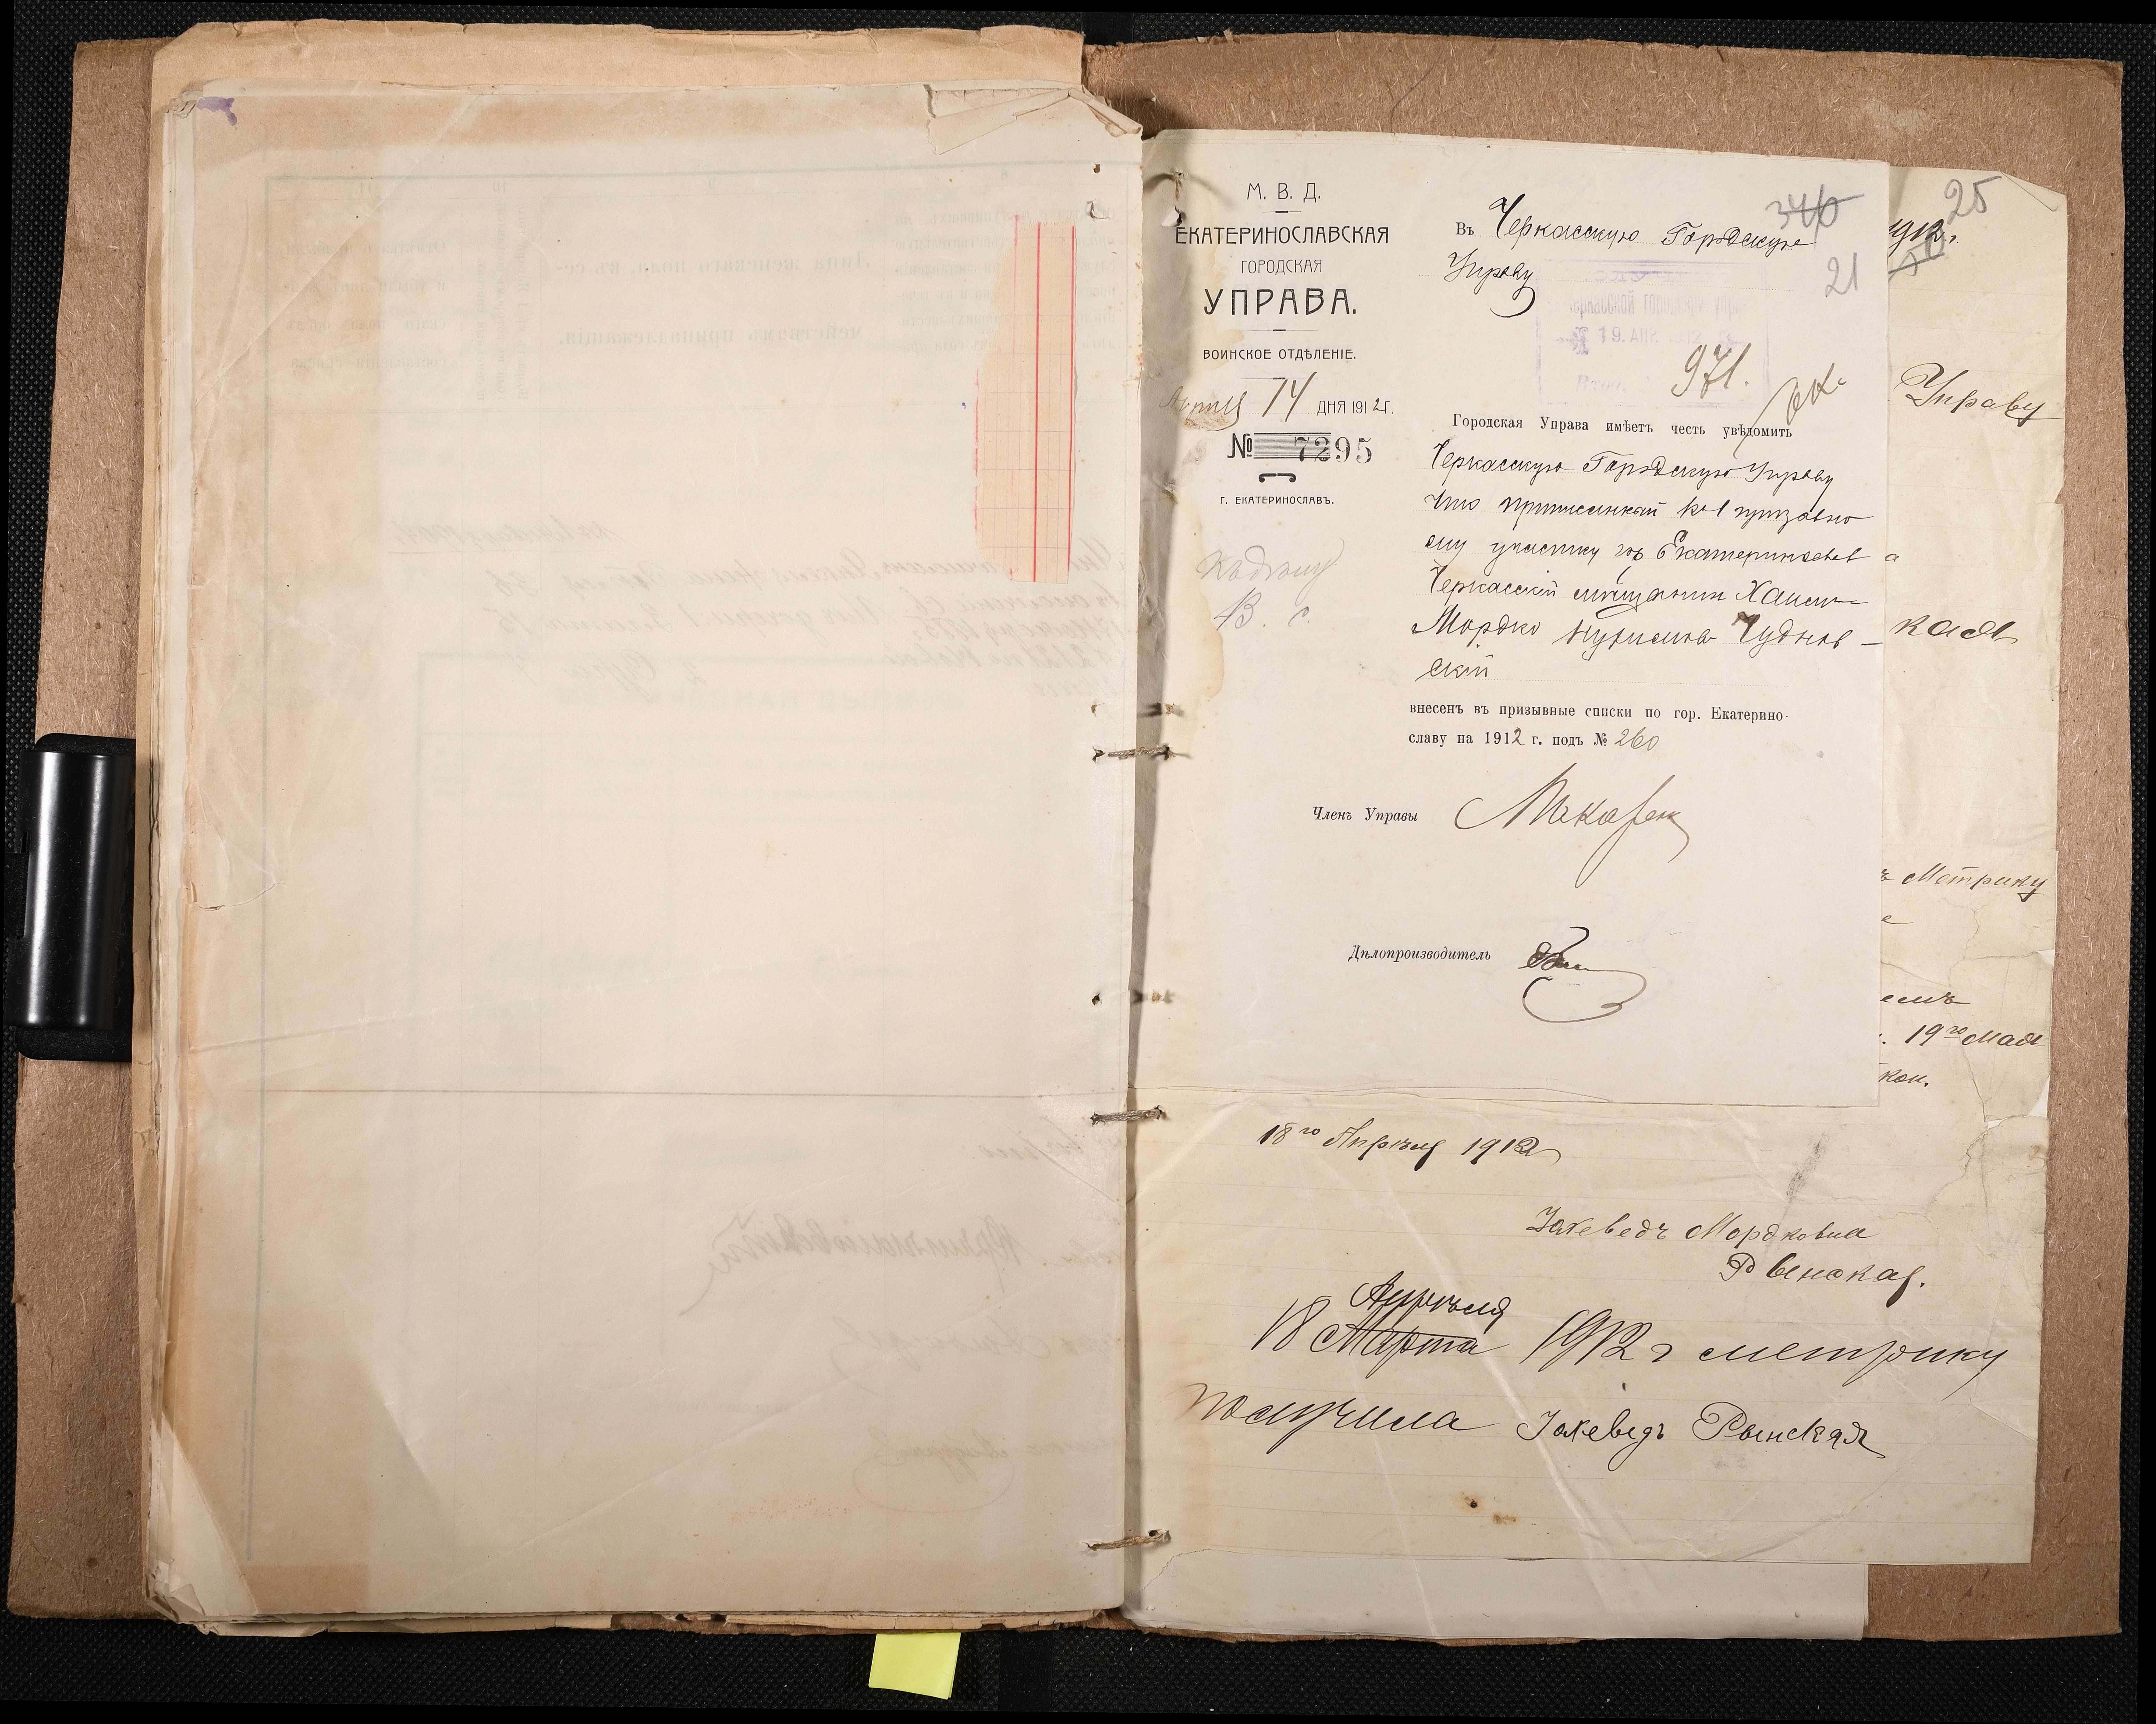 М. В. Д.
ЕКАТЕРИНОСЛАВСКАЯ
ГОРОДСКАЯ
УПРАВА.
ВОИНСКОЕ ОТДѢЛЕНІЕ.
Апрѣля 14 ДНЯ 1912 Г.
№ 7295
Г. ЕКАТЕРИНОСЛАВЪ.
В. С.
346
21
Въ Черкасскую Городскую
Управу
Черкасской городской упр
19. АПР. 1912
Вход.
971.
Городская Управа имѣетъ честь увѣдомить
Черкасскую Городскую Управу
что приписанный къ 1 призывно
му участку гор Екатеринослава
Черкасскій мѣщанинъ Хаим
Мордко Чуднов-
скій
внесенъ въ призывные списки по гор. Екатерино-
славу на 1912 г. подъ № 260
Членъ Управы
Дѣлопроизводитель
25
1912 г.
Управу
кая
Метрику
емъ
19го мая
кон.
18го Апрѣля 1912
Іохеведъ Мордковна
Рынская.
Апрѣля
18 Марта 1912 г метрику
получила Іохеведъ Рынская